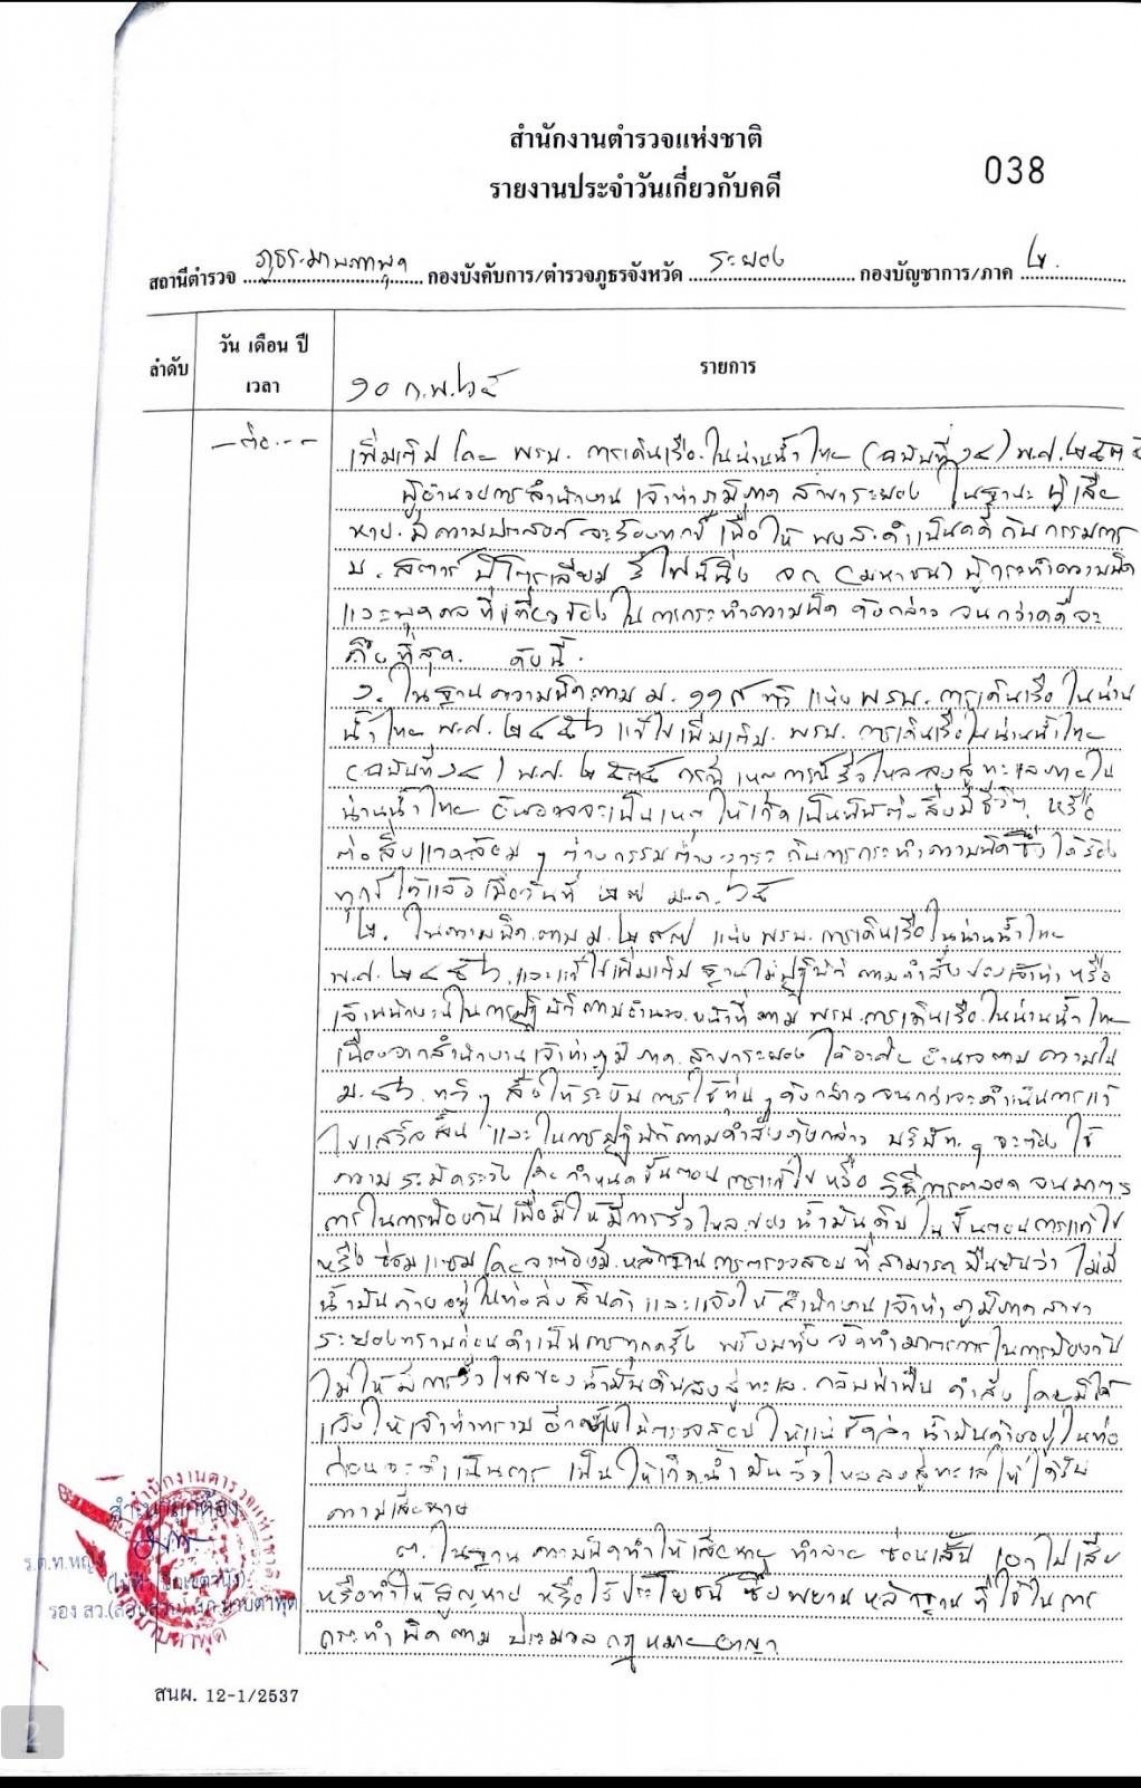 สำนักงานตำรวจแห่งชาติ
รายงานประจำวันเกี่ยวกับคดี
038
สถานีตำรวจ ภูธรมาบตาพุด กองบังคับการ/ตำรวจภูธรจังหวัด ระยอง กองบัญชาการ/ภาค ๒.
ลำดับ
วัน เดือน ปี
เวลา
รายการ
๑๐ ก.พ. ๖๕
-ต่อ---
เพิ่มเติม โดย พรบ. การเดินเรือในน่านน้ำไทย (ฉบับที่ ๑๔) พ.ศ. ๒๕๓๕
ผู้อำนวยการสำนักงาน เจ้าท่าภูมิภาค สาขาระยอง ในฐานะ ผู้เสีย
หาย มีความประสงค์ จะร้องทุกข์ เพื่อให้ พงส. ดำเนินคดี กับ กรรมการ
บ. สตาร์ ปิโตรเลียม รีไฟน์นิ่ง จก (มหาชน) ผู้กระทำความผิด
และบุคคลที่เกี่ยวข้อง ในการกระทำความผิด ดังกล่าว จนกว่าคดีจะ
ถึงที่สุด. ดังนี้.
๑. ในฐานความผิด ตาม ม. ๑๑๙ ทวิ แห่ง พรบ. การเดินเรือ ในน่าน
น้ำไทย พ.ศ. ๒๔๕๖ แก้ไขเพิ่มเติม. พรบ. การเดินเรือในน่านน้ำไทย
(ฉบับที่ ๑๔) พ.ศ. ๒๕๓๕ กรณี เหตุการณ์รั่วไหลลงสู่ทะเลภายใน
น่านน้ำไทย อันอาจจะเป็นเหตุ ให้เกิดเป็นพิษต่อสิ่งมีชีวิต หรือ
ต่อสิ่งแวดล้อม ๆ ต่างกรรมต่างวาระ กับการกระทำความผิดซึ่งได้ร้อง
ทุกข์ ไว้แล้ว เมื่อวันที่ ๒๗ ม.ค. ๖๕
๒. ในความผิด ตาม ม. ๒๙๗ แห่ง พรบ. การเดินเรือในน่านน้ำไทย
พ.ศ. ๒๔๕๖ และแก้ไขเพิ่มเติม ฐานไม่ปฏิบัติ ตามคำสั่งของเจ้าท่า หรือ
เจ้าพนักงานในการปฏิบัติตามอำนาจหน้าที่ตาม พรบ. การเดินเรือในน่านน้ำไทย
เนื่องจากสำนักงานเจ้าท่าภูมิภาค สาขาระยอง ได้อาศัย อำนาจตาม ความใน
ม. ๔๖ ทวิ ๆ สั่งให้ระงับ การใช้ทุ่น ๆ ดังกล่าว จนกว่าจะดำเนินการแก้
ไขเสร็จสิ้น และ ในการปฏิบัติตามคำสั่งดังกล่าว บริษัท ๆ จะต้อง ใช้
ความ ระมัดระวัง โดย กำหนดขั้นตอน การแก้ไข หรือ วิธีการตลอด จนมาตร
การในการป้องกัน เพื่อมิให้มีการรั่วไหลของน้ำมันดิบ ในขั้นตอนการแก้ไข
หรือ ซ่อมแซม โดยจะต้องมี หลักฐาน การตรวจสอบ ที่สามารถ ยืนยันว่า ไม่มี
น้ำมันค้างอยู่ในท่อส่งสินค้า และแจ้งให้ สำนักงานเจ้าท่า ภูมิภาคสาขา
ระยองทราบก่อนดำเนินการทุกครั้ง พร้อมทั้ง จัดทำมาตรการในการป้องกัน
ไม่ให้มีการรั่วไหลของน้ำมันดิบลงสู่ทะเล. กลับฝ่าฝืน คำสั่ง โดยมิได้
แจ้งให้เจ้าท่าทราบ อีกทั้งไม่ตรวจสอบ ให้แน่ชัดว่า น้ำมันค้างอยู่ในท่อ
ก่อนจะดำเนินการ เป็นให้เกิดน้ำมันรั่วไหลลงสู่ทะเล ได้รับ
ความเสียหาย
๓. ในฐาน ความผิดทำให้เสียหาย ทำลาย ซ่อนเร้น เอาไปเสีย
หรือทำให้สูญหาย หรือไร้ประโยชน์ ซึ่งพยานหลักฐาน ที่ใช้ในการ
กระทำผิด ตาม ประมวลกฎหมายอาญา
สำเนาถูกต้อง
ร.ต.ท.หญิง
รอง สว.(สอบสวน) สภ.มาบตาพุด
สนผ. 12-1/2537
2